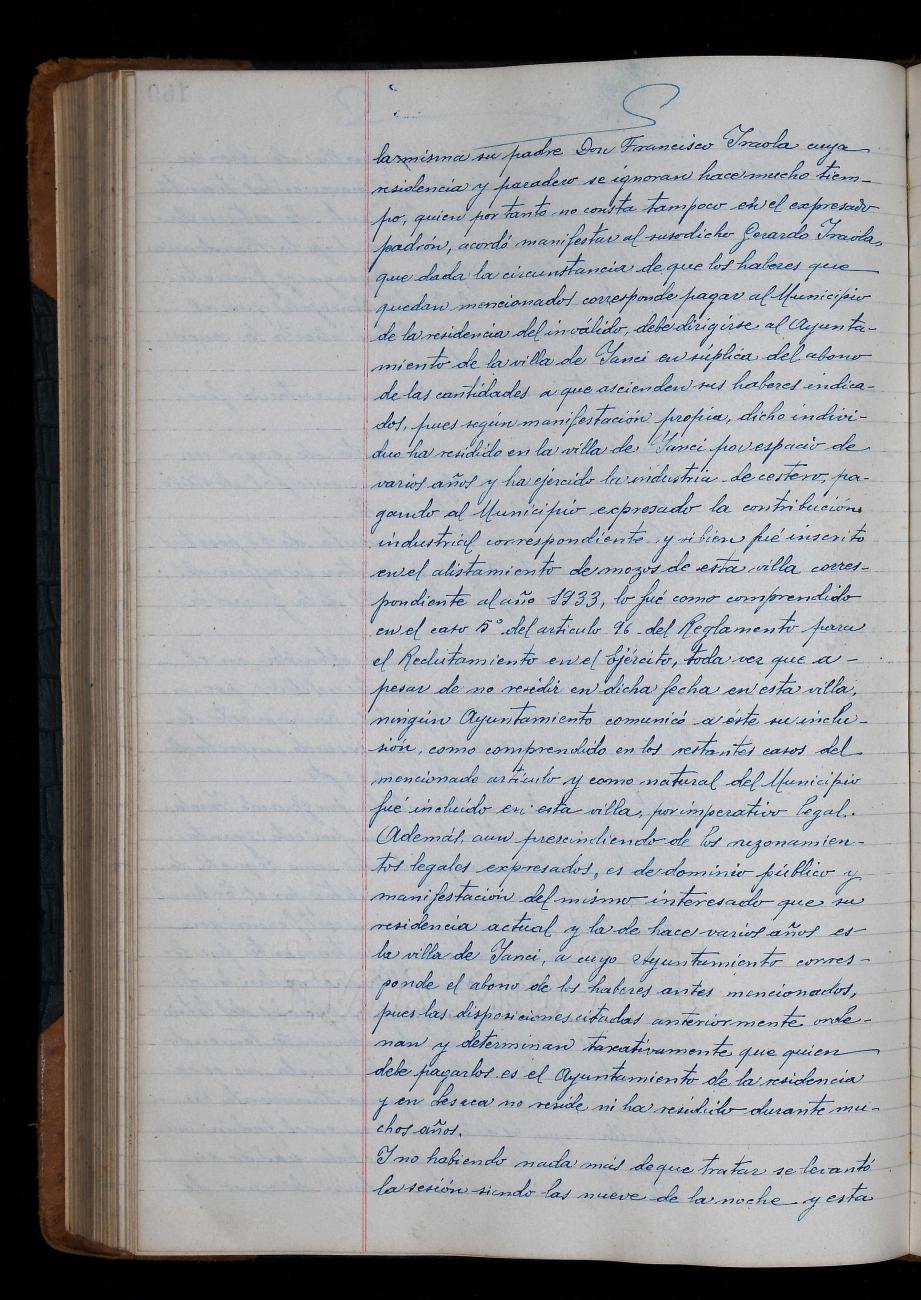 la misma su padre Don Francisco Iraola cuya
residencia y paradero se ignoran hace mucho tiem-
po, quien por tanto no consta tampoco en el expresado
padrón, acordó manifestar al susodicho Gerardo Iraola,
que dada la circunstancia de que los haberes que
quedan mencionados corresponde pagar al Municipio
de la residencia del inválido, debe dirigirse al Ayunta-
miento de la villa de Yanci en súplica del abono
de las cantidades a que ascienden sus haberes indica-
dos, pues según manifestación propia, dicho indivi-
duo ha residido en la villa de Yanci por espacio de
varios años y ha ejercido la industria de cestero, pa-
gando al Municipio expresado la contribución
industrial correspondiente y si bien fué inscrito
en el alistamiento de mozos de esta villa corres-
pondiente al año 1933, lo fué como comprendido
en el caso 5º del artículo 96 del Reglamento para
el Reclutamiento en el Ejército, toda vez que a-
pesar de no residir en dicha fecha en esta villa,
ningún Ayuntamiento comunicó a éste su inclu-
sión, como comprendido en los restantes casos del
mencionado artículo y como natural del Municipio
fué incluído en esta villa, por imperativo legal.
Además, aun prescindiendo de los razonamien-
tos legales expresados, es de dominio público y
manifestación del mismo interesado que su
residencia actual y la de hace varios años es
la villa de Yanci, a cuyo Ayuntamiento corres-
ponde el abono de los haberes antes mencionados,
pues las disposiciones citadas anteriormente orde-
nan y determinan taxativamente que quien
debe pagarlos es el Ayuntamiento de la residencia
y en Lesaca no reside ni ha residido durante mu-
chos años.
Y no habiendo nada más de que tratar se levantó
la sesión siendo las nueve de la noche y esta